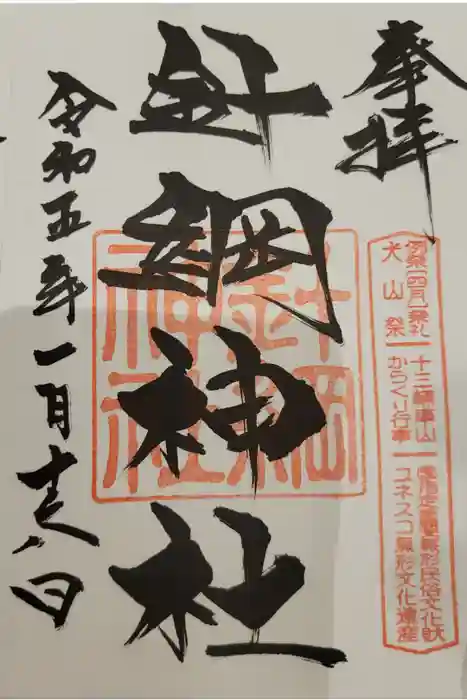 奉拝
例祭[四月]祭礼
犬山祭
十三輌車山
からくり行事
国指定重要無形民俗文化財
ユネスコ無形文化遺産
針綱神社
針綱
神社
令和五年一月十八日